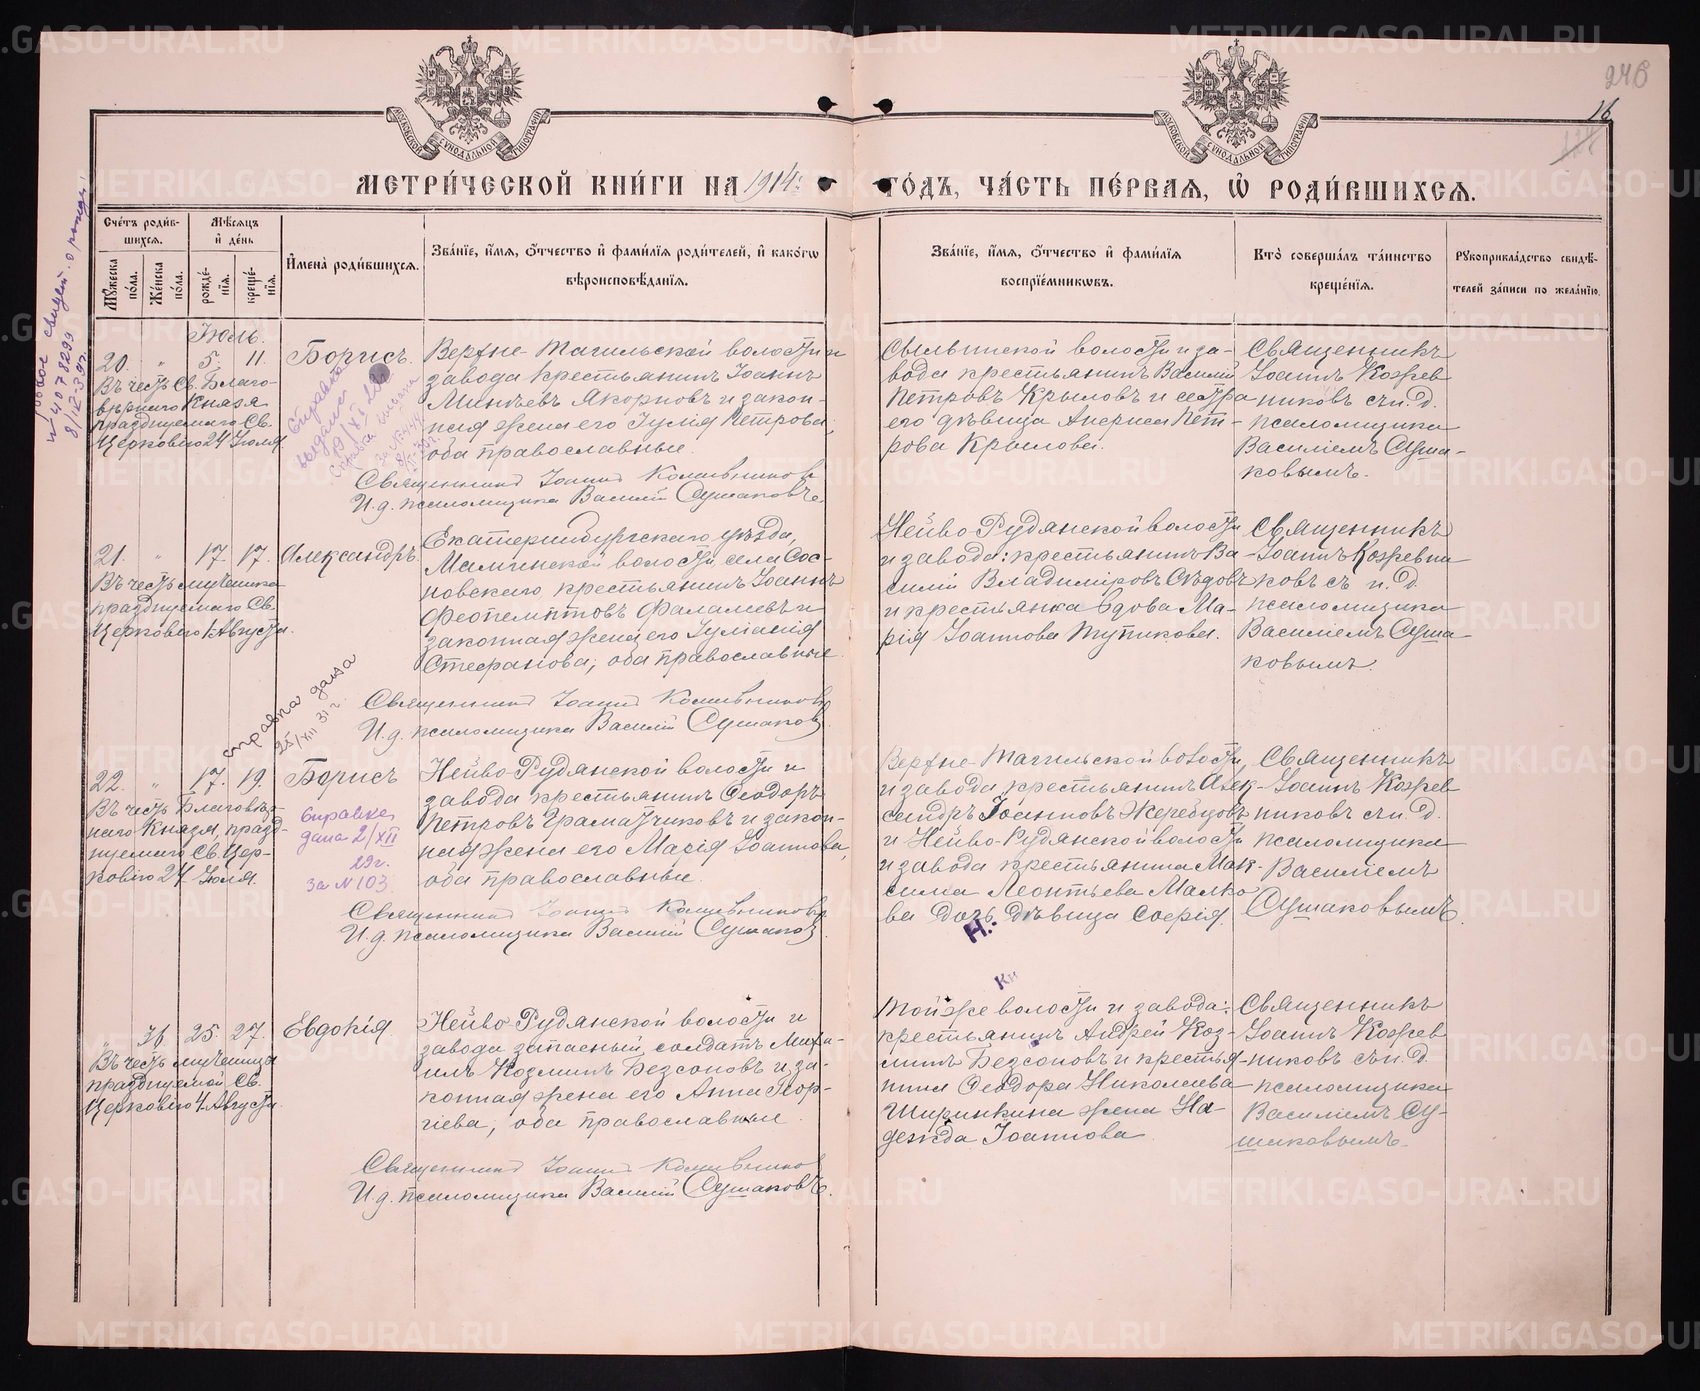 METRIKI.GASO-URAL.RU
246
16
МОСКОВСКОЙ СѴНОДАЛЬНОЙ ТИПОГРАФІИ
МОСКОВСКОЙ СѴНОДАЛЬНОЙ ТИПОГРАФІИ
МЕТРИ́ЧЕСКОЙ КНИ́ГИ НА 1914 ГО́ДЪ, ЧА́СТЬ ПЕ́РВАЯ, Ѡ҆ РОДИ́ВШИХСЯ.
Сче́тъ роди́в-
шихся.
Мꙋ́жеска по́ла.
Же́нска по́ла.
Мѣ́сяцъ
и҆ де́нь
рожде́-
нїѧ.
креще́-
нїѧ.
И҆мена̀ роди́вшихсѧ.
Зва́нїе, и҆́мѧ, ѻ҆́тчество и҆ фами́лїѧ роди́телей, и҆ како́гѡ
вѣроисповѣ́данїѧ.
Зва́нїе, и҆́мѧ, ѻ҆́тчество и҆ фами́лїѧ
воспрїе́мникѡвъ.
Кто̀ соверша́лъ та́инство
креще́нїѧ.
Рꙋкоприкла́дство свидѣ́-
телей за́писи по жела́нїю.
Іюль.
20. " 5. 11.
Въ честь Св. Благо-
вѣрнаго Князя
празднуемаго Св.
Церковію 24 Іюля.
Борисъ.
Верхне-Тагильской волости и
завода крестьянинъ Іоаннъ
закон-
ная жена его Іулія Петрова,
оба православные.
Священникъ Іоаннъ Кожевниковъ
И. д. псаломщика Василій Сушаковъ.
Сылвинской волости и за-
вода крестьянинъ Василій
Петровъ Крыловъ и сестра
его дѣвица Пет-
рова Крылова.
Священникъ
Іоаннъ Кожев-
никовъ съ и. д.
псаломщика
Василіемъ Суша-
ковымъ.
21. " 17. 17.
Въ честь мученика
празднуемаго Св.
Церковію 1 Августа.
Александръ.
Екатеринбургскаго уѣзда,
Маминской волости, села Сос-
новскаго крестьянинъ Іоаннъ
Феопемптовъ Фалалѣевъ и
законная жена его Іуліанія
Стефанова; оба православные.
Священникъ Іоаннъ Кожевниковъ
И. д. псаломщика Василій Сушаковъ.
Нейво-Рудянской волости
и завода: крестьянинъ Ва-
силій Владиміровъ Сѣдовъ
и крестьянка вдова Ма-
рія Іоаннова Тупикова.
Священникъ
Іоаннъ Кожевни-
ковъ съ и. д.
псаломщика
Василіемъ Суша-
ковымъ.
справка дана
25/XII 31 г.
22. " 17. 19.
Въ честь Благовѣр-
наго Князя, празд-
нуемаго Св. Цер-
ковію 24 Іюля.
Борисъ
Справка
дана 2/XII
29 г.
За № 103.
Нейво-Рудянской волости и
завода крестьянинъ Ѳеодоръ
Петровъ Граматчиковъ и закон-
ная жена его Марія Іоаннова,
оба православные.
Священникъ Іоаннъ Кожевниковъ
И. д. псаломщика Василій Сушаковъ.
Верхне-Тагильской волости,
и завода крестьянинъ Алек-
сандръ Іоанновъ Жеребцовъ
и Нейво-Рудянской волости
и завода крестьянина Мак-
сима Леонтьева Малко-
ва дочь дѣвица Софія.
Священникъ
Іоаннъ Кожев-
никовъ съ и. д.
псаломщика
Василіемъ
Сушаковымъ.
" 36. 25. 27.
Въ честь мученицы
празднуемой Св.
Церковію 4 Августа.
Евдокія
Нейво-Рудянской волости и
завода запасный солдатъ Миха-
илъ Козминъ Безсоновъ и за-
конная жена его Анна Геор-
гіева, оба православные.
Священникъ Іоаннъ Кожевниковъ
И. д. псаломщика Василій Сушаковъ.
Той же волости и завода:
крестьянинъ Андрей Коз-
минъ Безсоновъ и крестья-
нина Ѳеодора Николаева
Ширинкина жена На-
дежда Іоаннова.
Священникъ
Іоаннъ Кожев-
никовъ съ и. д.
псаломщика
Василіемъ Су-
шаковымъ.